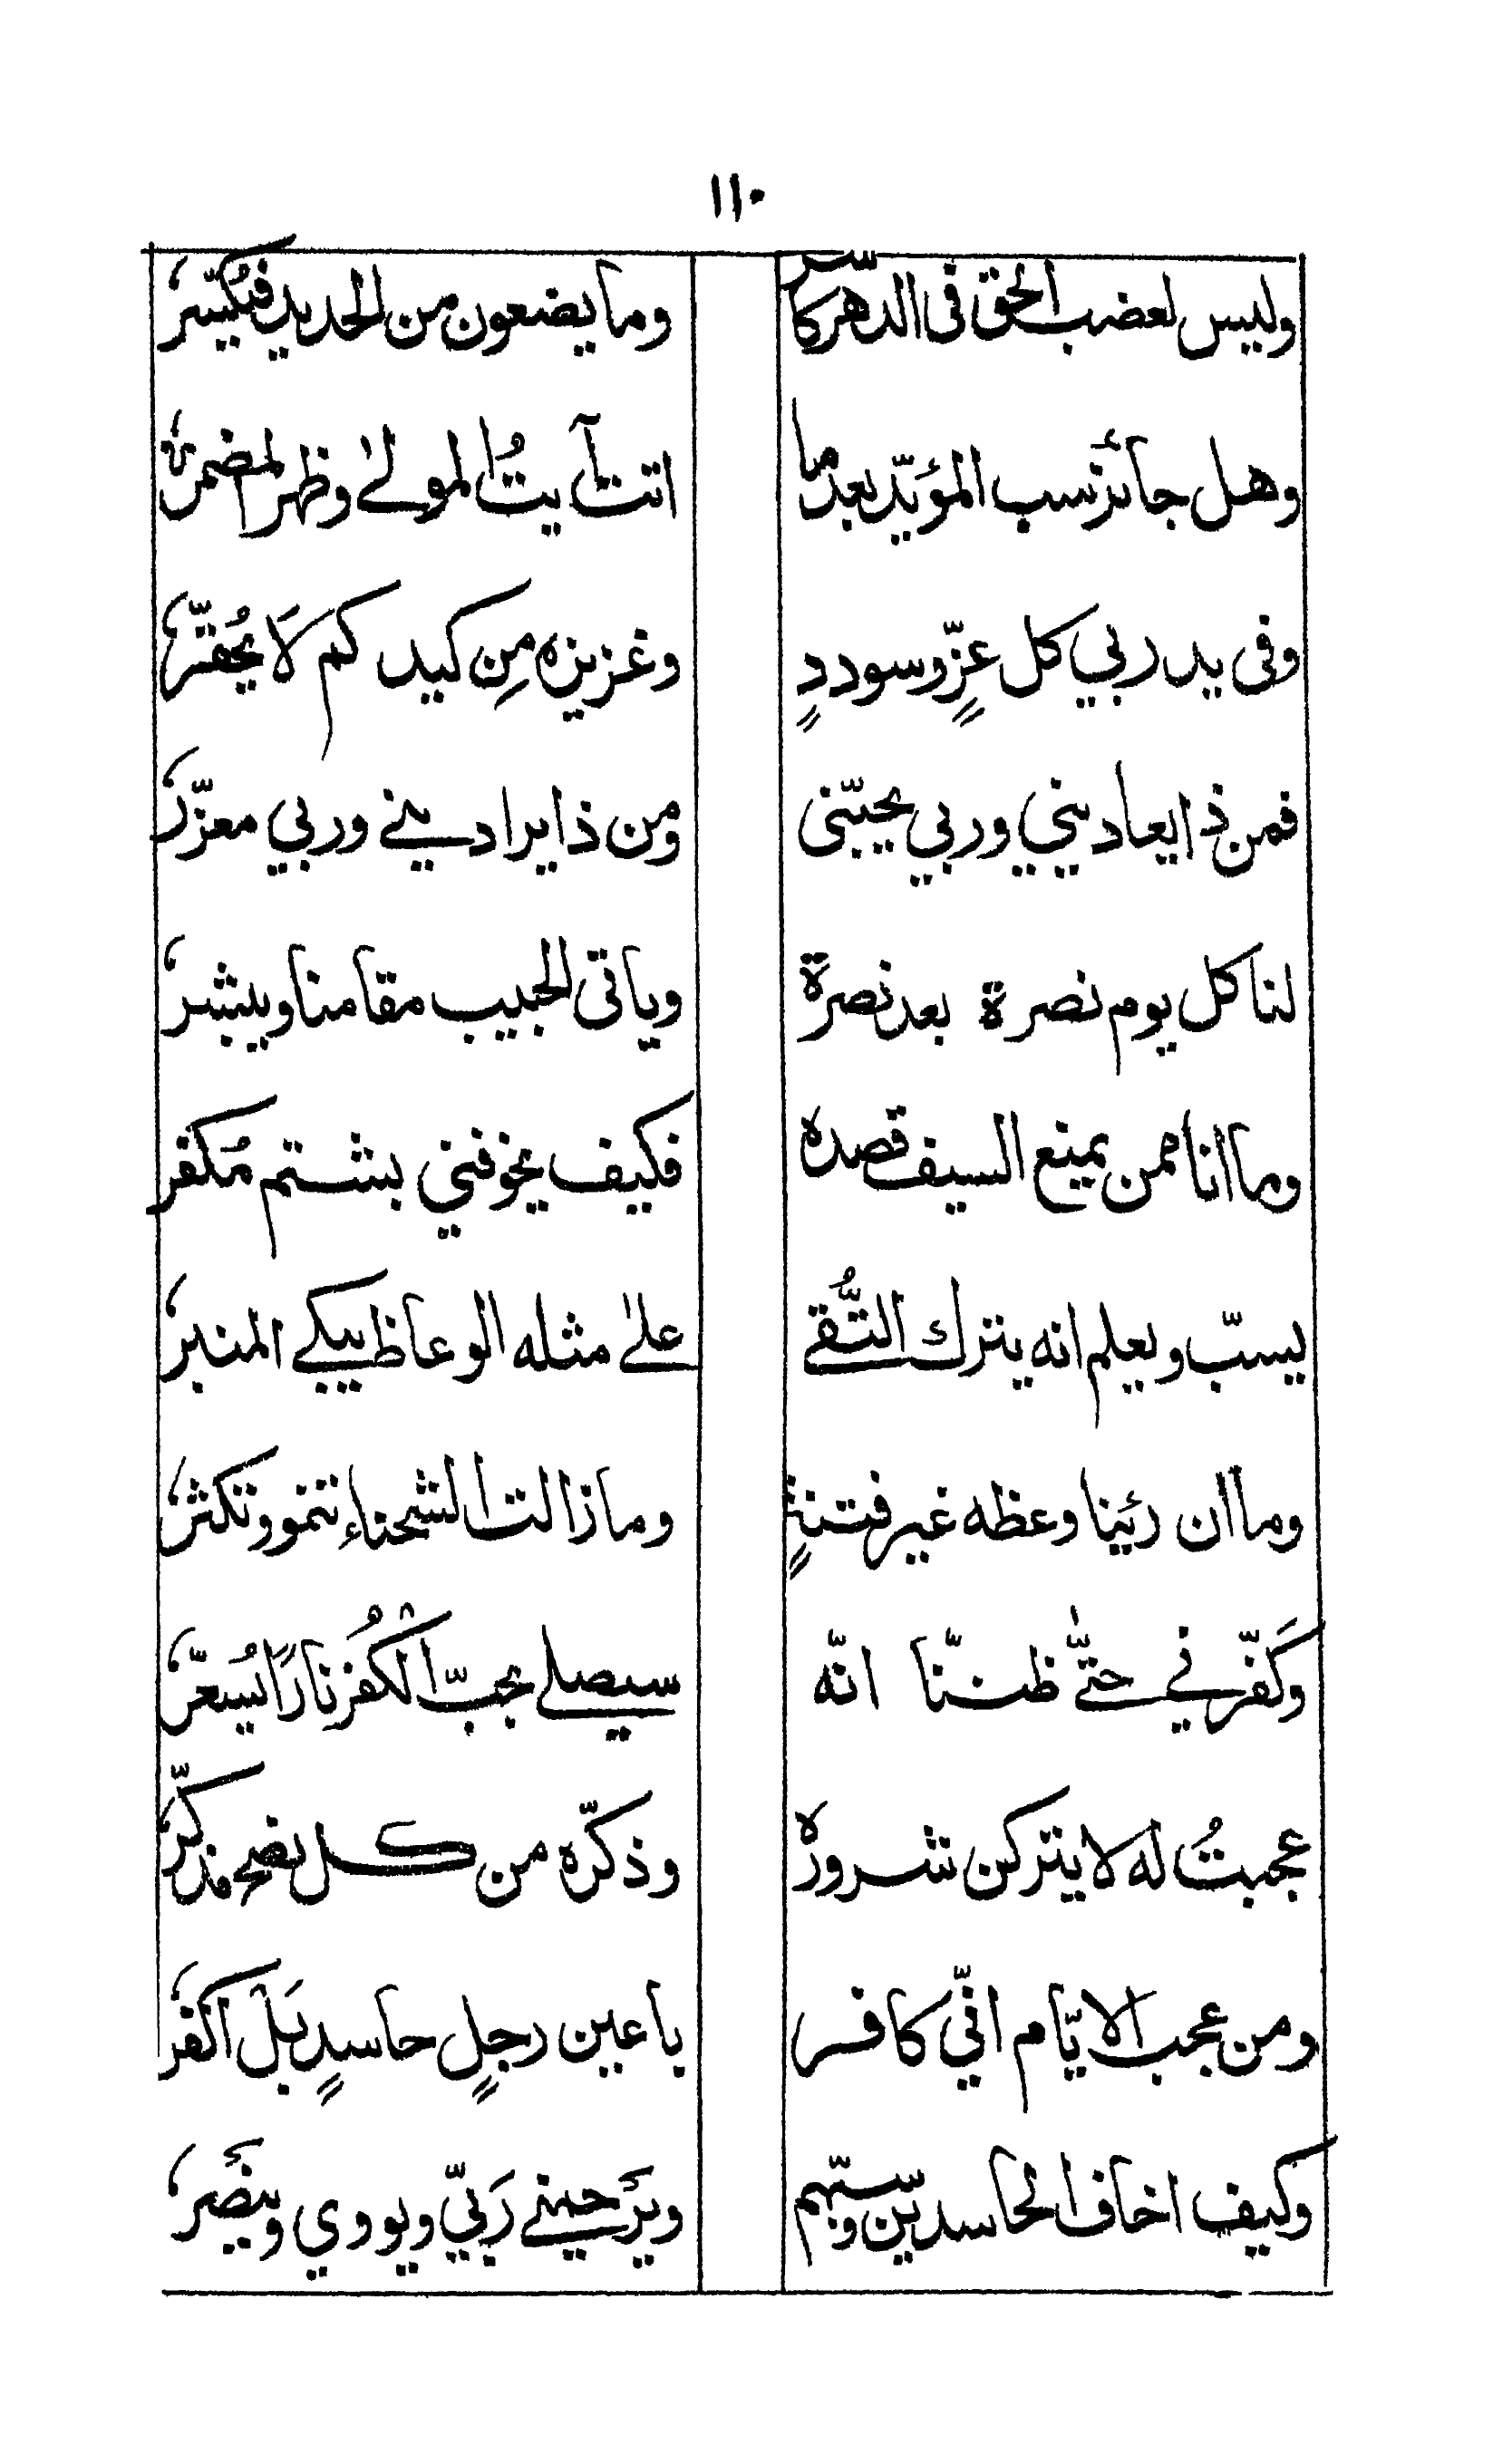 ١١٠
وليس لعضب الحق فى الدهر كاسر وما يضعون من الحديد فيُكسّر
وهل جائز سب المؤيّد بعد ما اتت آيتُ المولىٰ وظهر المضمر
وفى يد ربي كل عزٍّ وسوددٍ وغزيزه مِن كيد كم لَا يُحقّر
فمن ذا يعاديني وربي يحبّنى ومن ذا يراديني وربي معزّر
لنا كل يوم نصرة بعد نصرة وياتى الحبيب مقامنا ويبشر
وما انا ممن يمنع السيف قصده فكيف يخوفني بشتم مُكفر
يسبّ ويعلم انه يترك التُّقى علىٰ مثله الوعاظ يبكي المنبر
وما ان رئينا وعظه غير فتنةٍ وما زالت الشحناء تنمو وتكثر
وَكفّرني حتّٰى ظننّا انّه سيصلى بحبّ الكُفر نارًا يُسعّر
عجبتُ له لا يتركن شروره وذكّره من كل نصح مذكّر
ومن عجب الايّام انّي كافر باعين رجلٍ حاسدٍ بَلْ اكفر
وكيف اخاف الحاسدين وسبّهم ويَرْحمني رَبّي ويووي وينصر